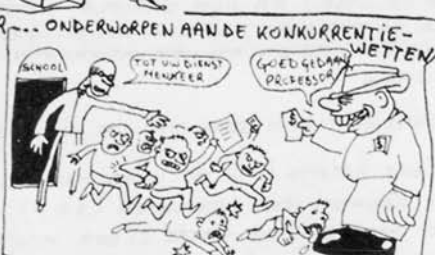 R... ONDERWORPEN AAN DE KONKURRENTIE-
WETTEN
SCHOOL
TOT UW DIENST
MENHEER
GOED GEDAAN
PROFESSOR
$
$